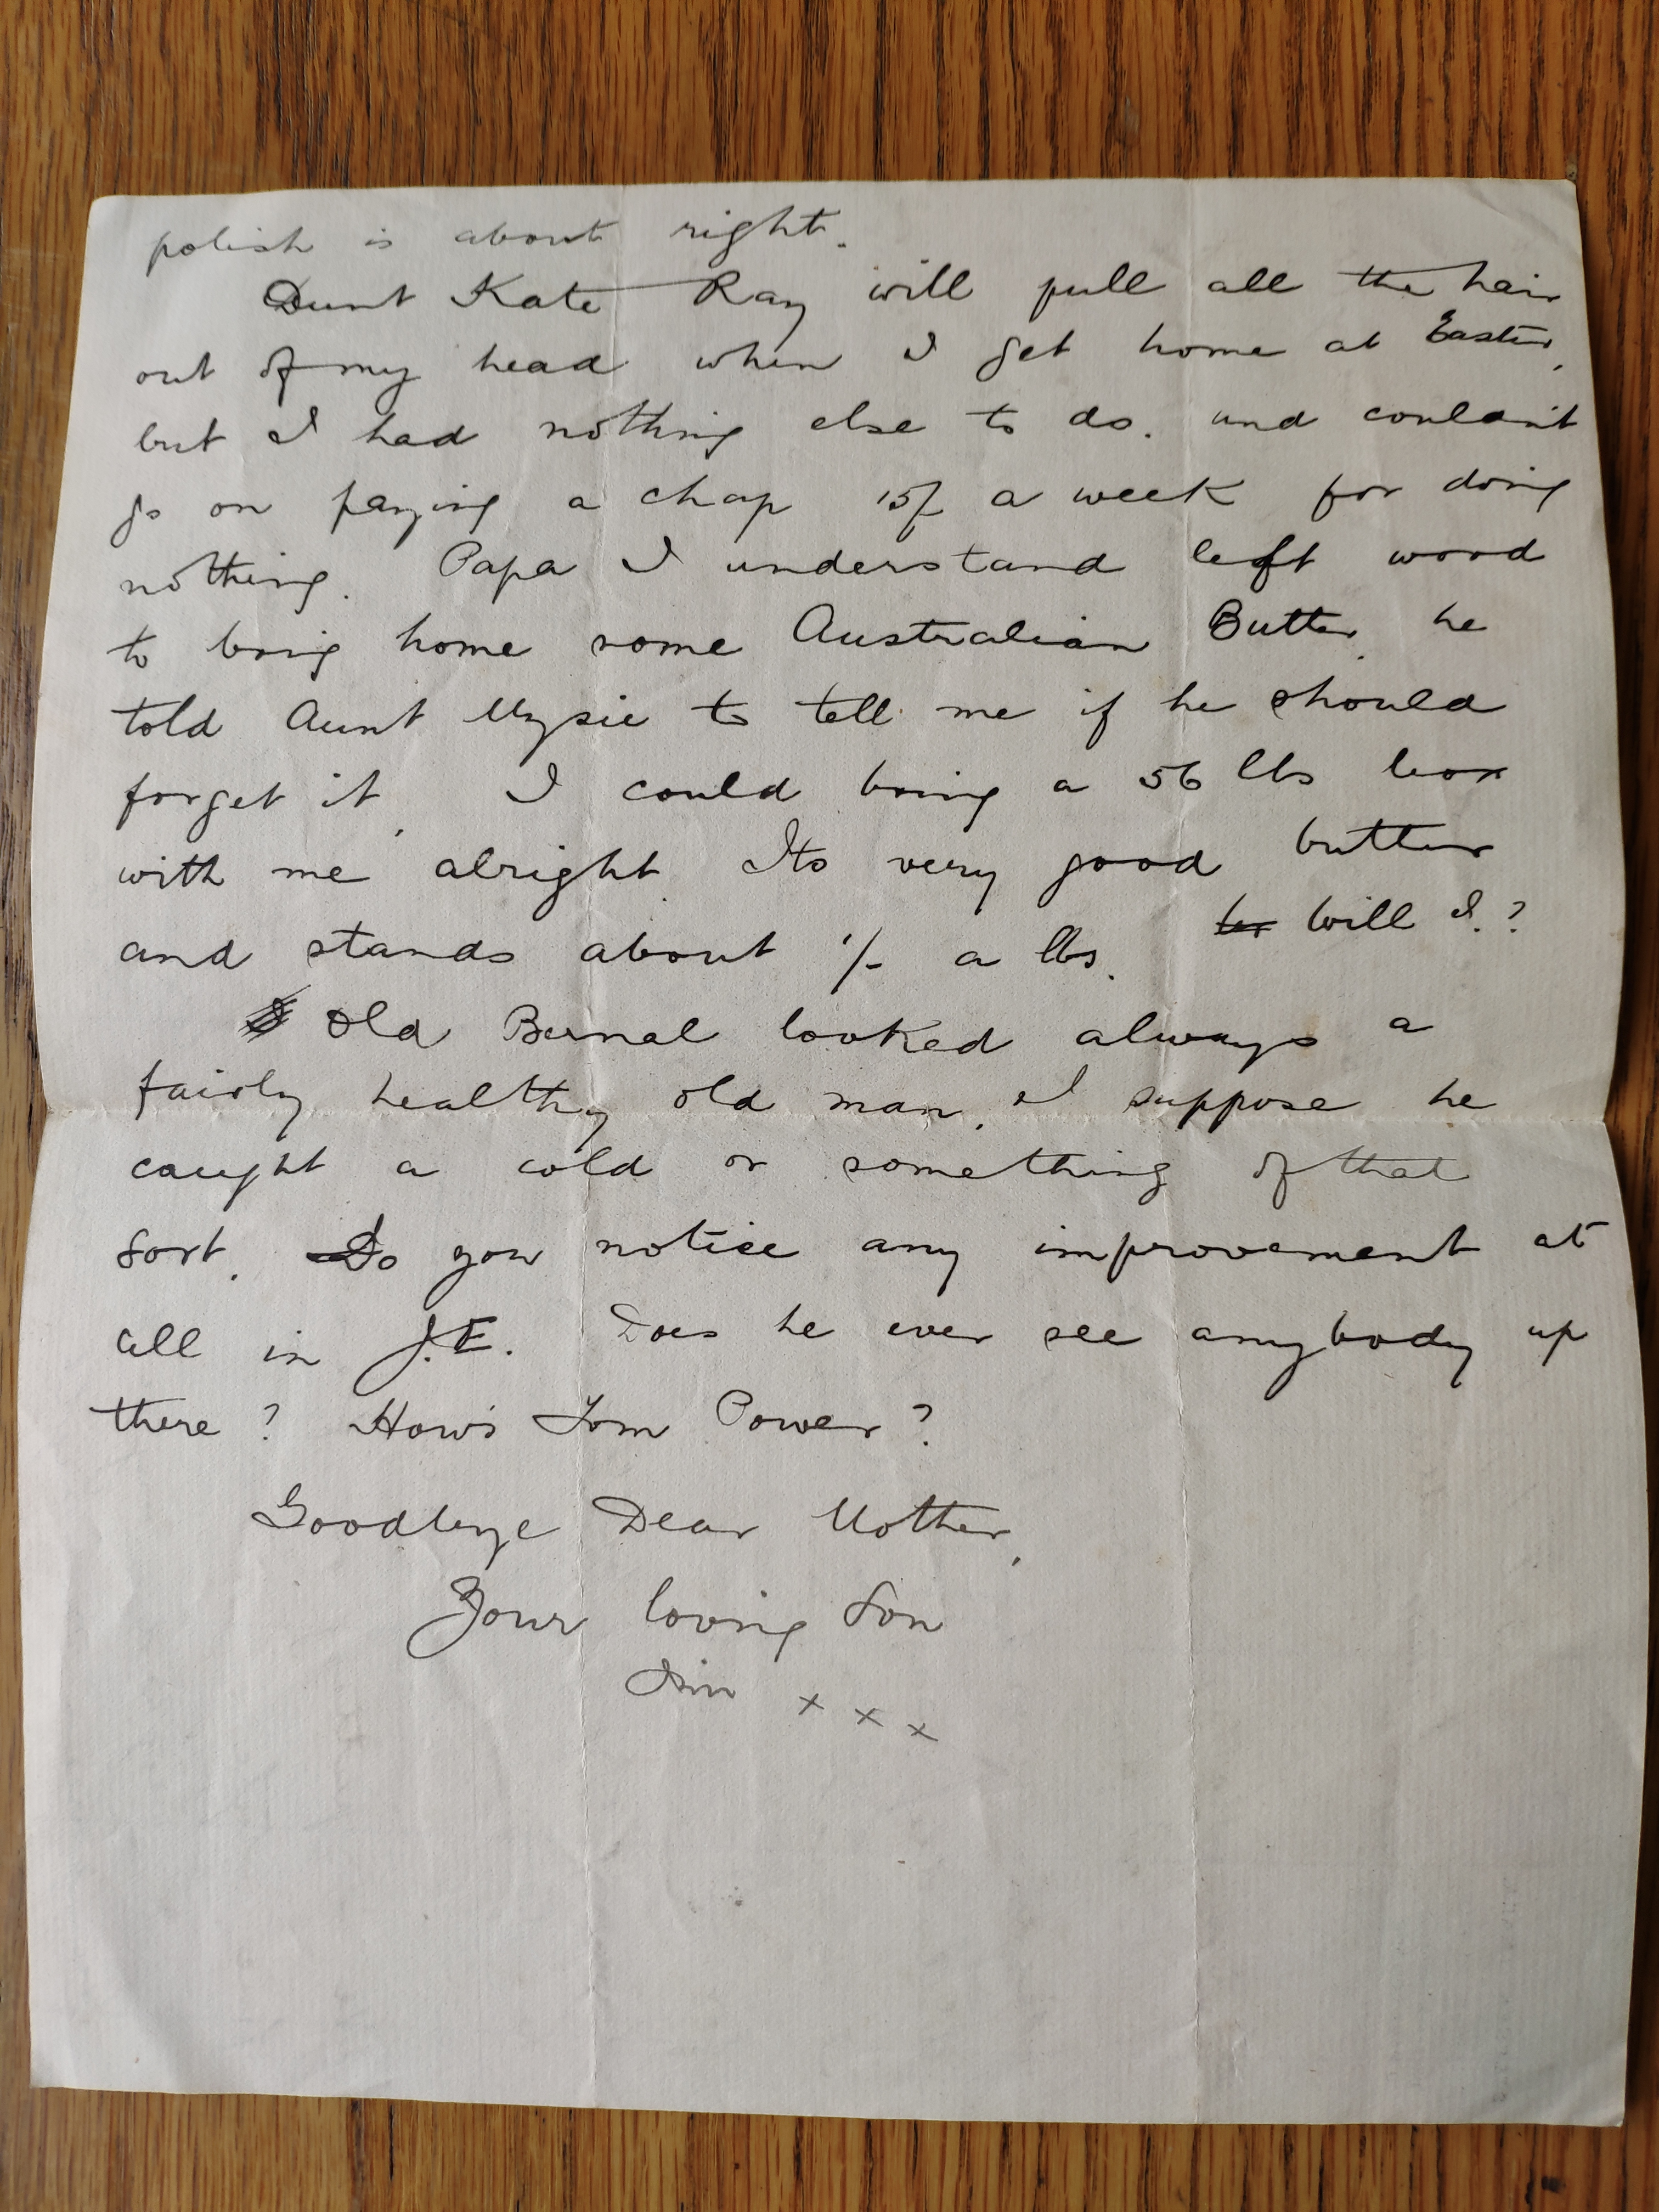 polish is about right.
Aunt Kate Ray will pull all the hair
out of my head when I get home at Easter,
but I had nothing else to do. and couldn't
go on paying a chap 15/ a week for doing
nothing. Papa I understand left word
to bring home some Australian Butter, he
told Aunt Mysie to tell me if he should
forget it, I could bring a 56 lbs box
with me alright. Its very good butter
and stands about 1/- a lbs. Will I.?
Old Bernal looked always a
fairly healthy old man, I suppose he
caught a cold or something of that
sort. Do you notice any improvement at
all in J.E. Does he ever see anybody up
there? How's Tom Power?
Goodbye Dear Mother,
Your loving Son
x x x